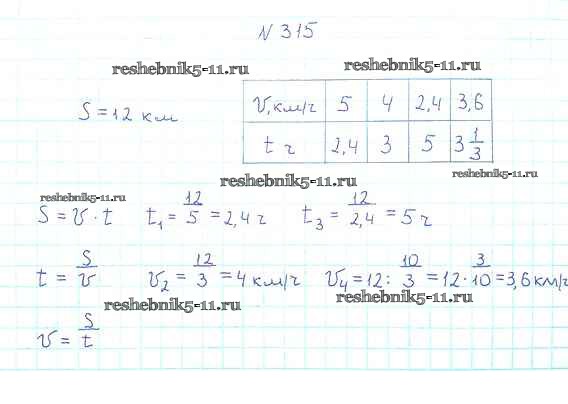 N 315
reshebnik5-11.ru reshebnik5-11.ru
S = 12 км
v, км/ч 5 4 2,4 3,6
t ч 2,4 3 5 3 1/3
reshebnik5-11.ru reshebnik5-11.ru
reshebnik5-11.ru
S = v · t t₁ = 12/5 = 2,4 ч t₃ = 12/2,4 = 5 ч
t = S/v v₂ = 12/3 = 4 км/ч v₄ = 12 : 10/3 = 12 · 3/10 = 3,6 км/ч
reshebnik5-11.ru reshebnik5-11.ru
v = S/t